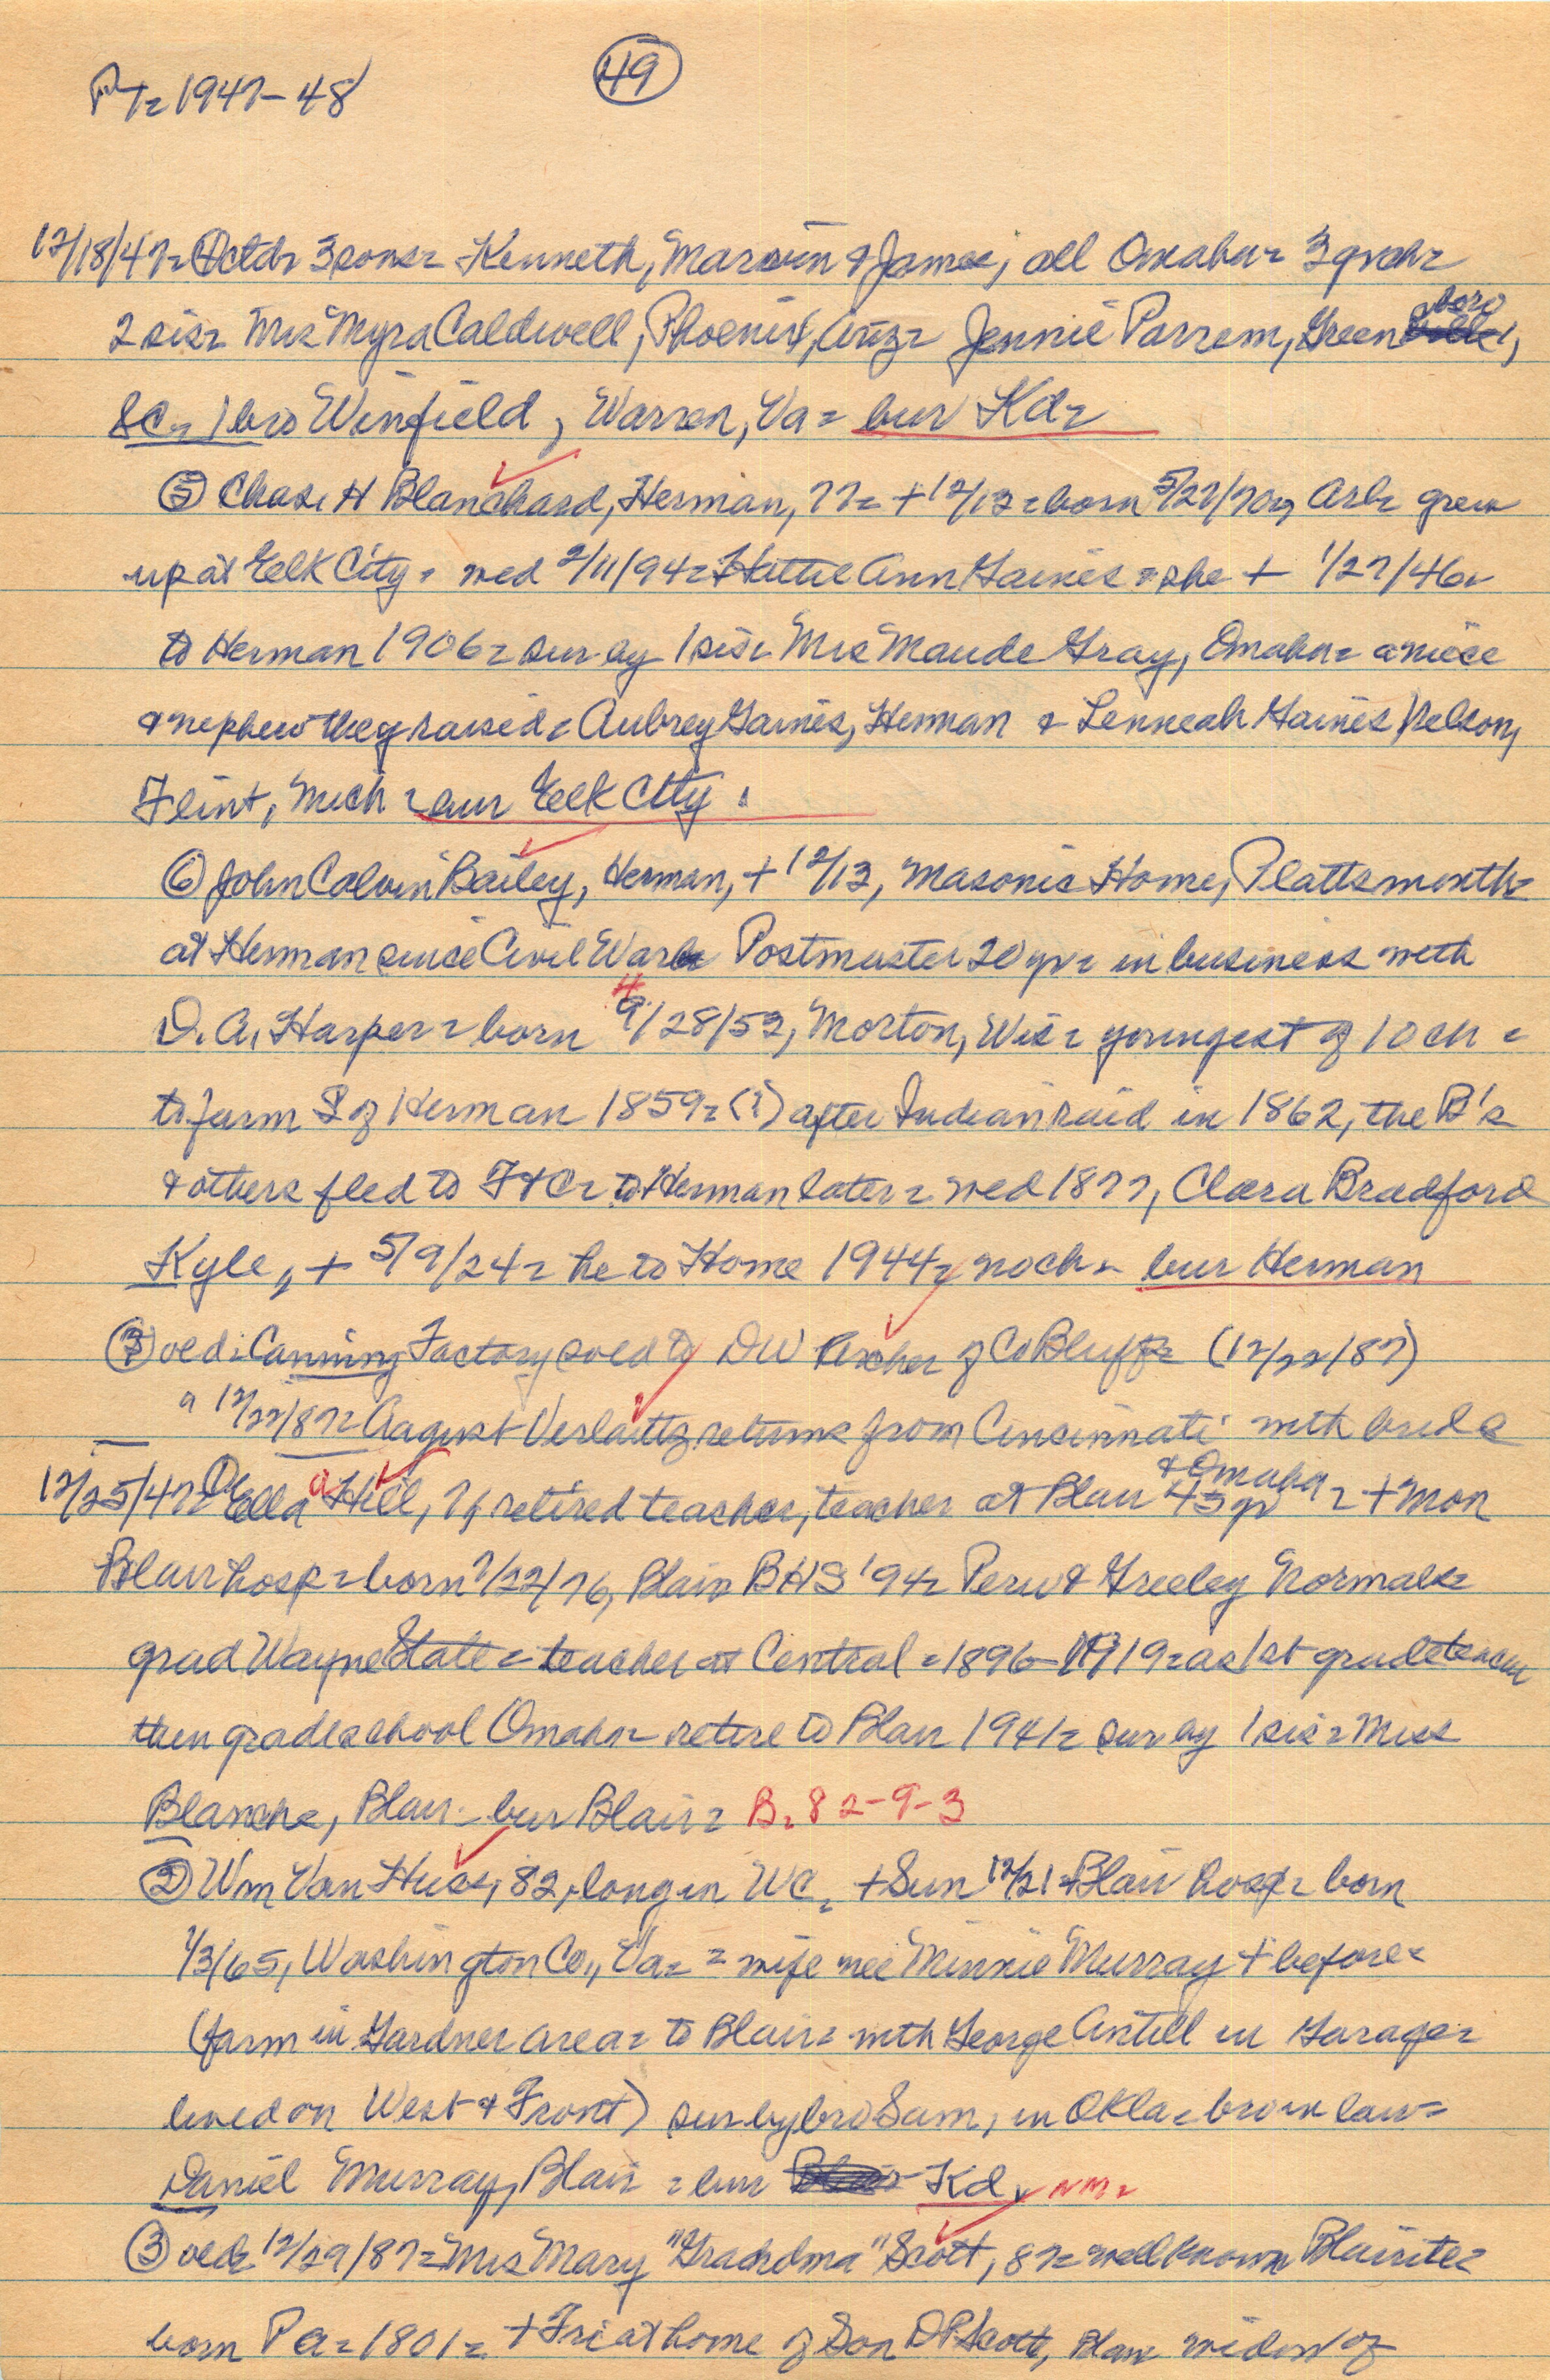 PT= 1947-48
49
12/18/47= 4ctd= 3 sons= Kenneth, Marvin & James, all Omaha= 3 grch=
2 sis= Mrs Myra Caldwell, Phoenix, Ariz= Jennie Parrem, Greenboro,
SC= 1 bro Winfield, Warren, Va= bur Kd=
5 Chas. H Blanchard, Herman, 77= + 12/13= born 5/27/70, Arl= grew
up at Elk City= wed 2/11/94= Hattie Ann Gaines= she + 1/27/46=
to Herman 1906= sur by 1 sis= Mrs Maude Gray, Omaha= a niece
& nephew they raised= Aubrey Gaines, Herman & Lenneah Gaines Nelson,
Flint, Mich= bur Elk City.
6 John Calvin Bailey, Herman, + 12/13, Masonic Home, Plattsmouth=
at Herman since Civil War= Postmaster 20 yr= in business with
D. A. Harper= born 4/28/53, Morton, Wis= youngest of 10 ch=
to farm S of Herman 1859= (?) after Indian raid in 1862, the B's
& others fled to FtC= to Herman later= wed 1877, Clara Bradford
Kyle, + 5/9/24= he to Home 1944= no ch= bur Herman
7 old: Canning Factory sold to DW Archer of Co Bluffs= (12/22/87)
" 12/22/87= August returns from Cincinnati with bride
12/25/47= 1 Ella a Hill, 71, retired teacher, teacher at Blair & Omaha 45 yr= + Mon
Blair hosp= born 7/22/76, Blair BHS '94= Peru & Greeley Normals=
grad Wayne State= teacher at Central= 1896-1919= as 1st grade teacher
then grade school Omaha= retire to Blair 1941= sur by 1 sis= Miss
Blanche, Blair= bur Blair= B. 82-9-3
2 Wm Van Huss, 82, long in WC, + Sun 12/21= Blair hosp= born
1/3/65, Washington Co., Va= = wife nee Minnie Murray + before=
(farm in Gardner area= to Blair= with George Antill in Garage=
lived on West & Front) sur by bro Sam, in Okla= bro in law=
Daniel Murray, Blair= bur Kd, NM=
3 old= 12/29/87= Mrs Mary "Grandma" Scott, 87= well known Blairite=
born Pa= 1801= + Fri at home of Son DP Scott, Blair widow of